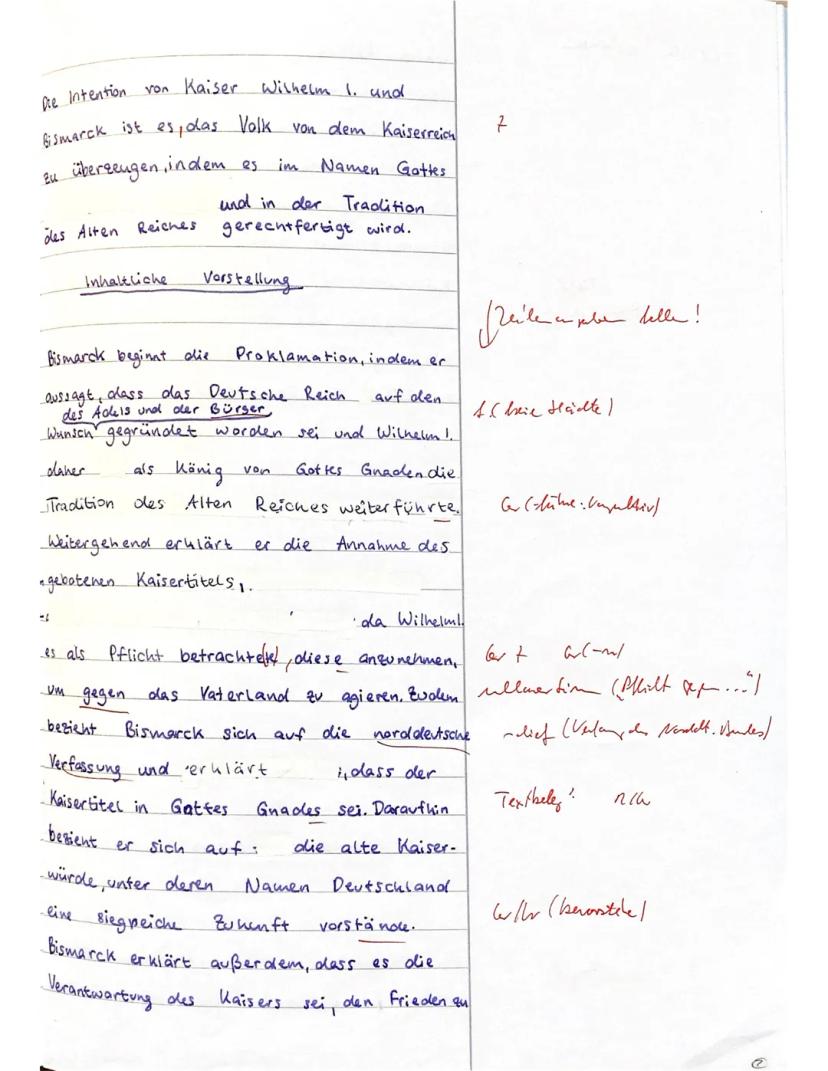 Die Intention von Kaiser Wilhelm I. und
Bismarck ist es, das Volk von dem Kaiserreich
zu überzeugen, indem es im Namen Gottes
und in der Tradition
des Alten Reiches gerechtfertigt wird.
Inhaltliche Vorstellung
Zeilenangaben
Bismarck beginnt die Proklamation, indem er
aussagt, dass das Deutsche Reich auf den
des Adels und der Bürger
Wunsch gegründet worden sei und Wilhelm I.
daher als König von Gottes Gnaden die
Tradition des Alten Reiches weiterführte.
Weitergehend erklärt er die Annahme des
gebotenen Kaisertitels,
da Wilhelm I.
es als Pflicht betrachtete, diese anzunehmen,
um gegen das Vaterland zu agieren. Zudem
bezieht Bismarck sich auf die norddeutsche
Verfassung und erklärt, dass der
Kaisertitel in Gottes Gnades sei. Daraufhin
Textbeleg!
bezieht er sich auf: die alte Kaiser-
würde, unter deren Namen Deutschland
eine siegreiche Zukunft vorstände.
Bismarck erklärt außerdem, dass es die
Verantwartung des Kaisers sei, den Frieden zu
2